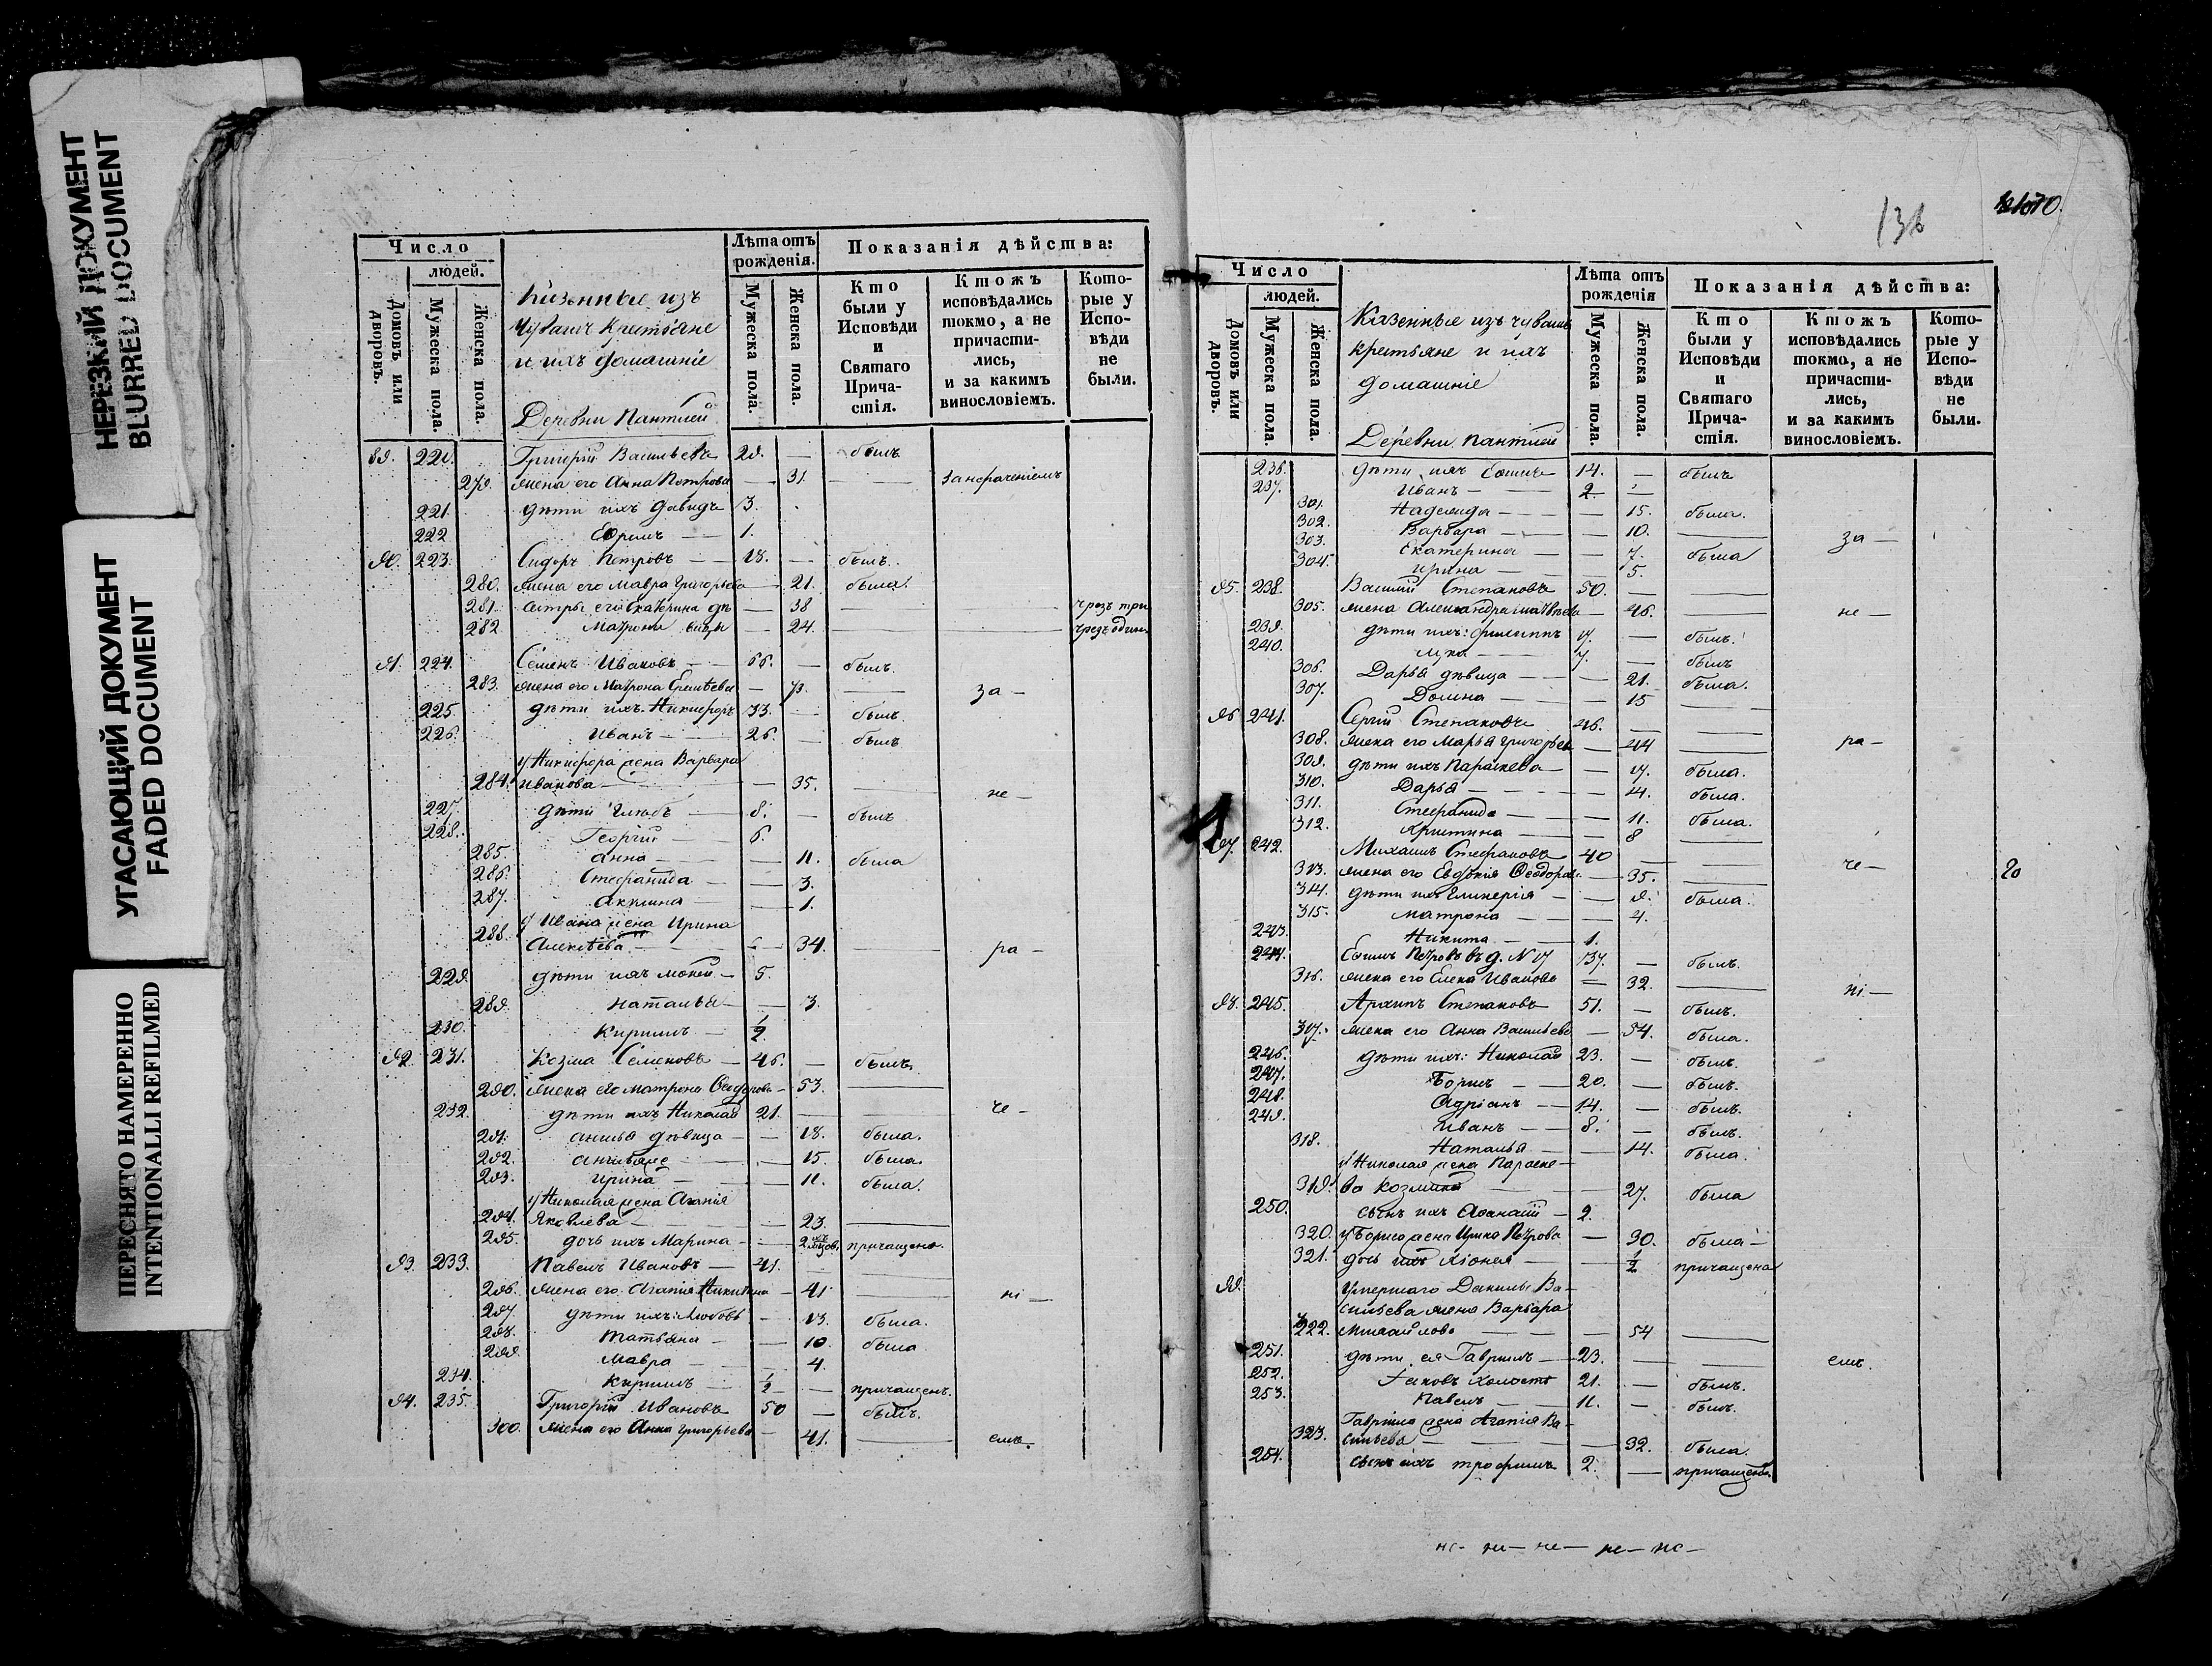 НЕРЕЗКИЙ ДОКУМЕНТ
BLURRED DOCUMENT
УГАСАЮЩИЙ ДОКУМЕНТ
FADED DOCUMENT
ПЕРЕСНЯТО НАМЕРЕННО
INTENTIONALLI REFILMED
Число
людей.
Домовъ или дворовъ.
Мужеска пола.
Женска пола.
Казенные изъ
Чувашъ Крестьяне
и ихъ домашніе
Деревни Пантлей
Лѣта отъ рожденія.
Мужеска пола.
Женска пола.
Показанія дѣйства:
Кто были у Исповѣди и Святаго Прича-стія.
Ктожъ исповѣдались токмо, а не причасти-лись, и за какимъ винословіемъ.
Кото-рые у Испо-вѣди не были.
89. 220. Григорій Васильевъ 29. — былъ
279. жена его Анна Петрова — 31. — за нераченіемъ
221. дѣти ихъ Давидъ 3.
222 Ефимъ — 1.
90. 223. Сидоръ Петровъ — 18. — былъ.
280. жена его Мавра Григорьева — 21. была.
281. сестры его Екатерина дѣ — 38 — чрезъ три
282 Матрона — 24. — чрезъ один.
91. 224. Семенъ Ивановъ — 66. — былъ.
283. жена его Матрона — за —
225. дѣти ихъ Никифоръ 33. — былъ.
226. Иванъ — 26. — былъ
у Никифора жена Варвара
284. Иванова — 35. — не —
227. дѣти Глѣбъ — 8. — былъ
228. Георгій — 6.
285. Анна — 11. была
286. Стефанида — 3.
287. Акилина — 1.
у Ивана жена Ирина
288. Алексѣева — 34. — ра —
229. дѣти ихъ Мокей — 5.
289. Наталья — 3.
230. Кирилъ — 1/2.
92. 231. Козма Семеновъ — 46. — былъ.
290. жена его Матрона Феодорова — 53. —
232. дѣти ихъ Николай 21. — че —
291. дѣвица — 18. была.
292. — 15. была.
293. Ирина — 11. была.
у Николая жена Агапія
294. Яковлева — 23. —
295. дочь ихъ Марина — 2 причащена.
93. 233. Павелъ Ивановъ — 41. —
296. жена его Агапія Никитина — 41 — ні —
297. дѣти ихъ: Любовь — 13. была.
298. Татьяна — 10 была
299. Мавра — 4.
234. Кирилъ — 1/2 — причащенъ.
94. 235. Григорій Ивановъ 50 — былъ.
300. жена его Анна Григорьева — 41. — емъ.
136
Число
людей.
Домовъ или дворовъ.
Мужеска пола.
Женска пола.
Казенные изъ чувашъ
крестьяне и ихъ
домашніе
Деревни Пантлей
Лѣта отъ рожденія
Мужеска пола.
Женска пола.
Показанія дѣйства:
Кто были у Исповѣди и Святаго Прича-стія.
Ктожъ исповѣдались токмо, а не причасти-лись, и за какимъ винословіемъ.
Кото-рые у Испо-вѣди не были.
236. дѣти ихъ Ефимъ 14. — былъ
237. Иванъ — 2 —
301. Надежда — 15. была.
302. Варвара — 10. —
303. Екатерина — 7. была за —
304. Ирина — 5.
95. 238. Василій Степановъ 50. —
305. жена Александра — 46. — не —
239. дѣти ихъ: Филиппъ 17. — былъ.
240. Лука — 7. — былъ
306. Дарья дѣвица — 21. была.
307. Домна — 15 —
96 241. Сергій Степановъ 46. —
308. жена его Марья Григорьева — 44 — ра —
309. дѣти ихъ Параскева — 17. была.
310. Дарья — 14. была.
311. Стефанида — 11. была.
312. Христина — 8 —
97. 242. Михаилъ Стефановъ 40 — че —
20
313. жена его Евдокія Феодорова — 35. —
314. дѣти ихъ Гликерія — 9. была.
315. Матрона — 4.
243. Никита — 1.
244. Ефимъ Петровъ въ д. N 17 37. — былъ.
316. жена его Елена Иванова — 32. — ні —
98. 245. Архипъ Степановъ 51. — былъ.
317. жена его Анна Васильева — 54. была.
246. дѣти ихъ: Николай 23. — былъ.
247. Борисъ — 20. — былъ.
248. Адріанъ — 14. — былъ.
249. Иванъ — 8. — былъ.
318. Наталья — 14. была.
у Николая жена Параске-
319. ва Козмина — 27. была
250. сынъ ихъ Афанасій — 2.
320. у Бориса жена Ирина Петрова — 30. была —
321. дочь ихъ Хіонія — 1/2 причащена
99. Умершаго Данилы Ва-
сильева жена Варвара
322. Михайлова — 54 —
251. дѣти ея Гаврилъ — 23. — емъ.
252. Іаковъ холостъ 21. — былъ.
253. Павелъ — 11. — былъ.
Гавріила жена Агапія Ва-
323. сильева — 32. была.
254. сынъ ихъ Трофимъ 2. — причащенъ.